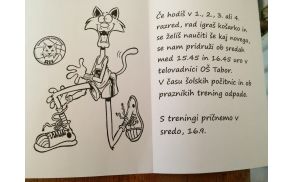 Če hodiš v 1., 2., 3. ali 4.
razred, rad igraš košarko in
se želiš naučiti še kaj novega,
se nam pridruži ob sredah
med 15.45 in 16.45 uro v
telovadnici OŠ Tabor.
V času šolskih počitnic in ob
praznikih trening odpade.
S treningi pričnemo v
sredo, 16.9.